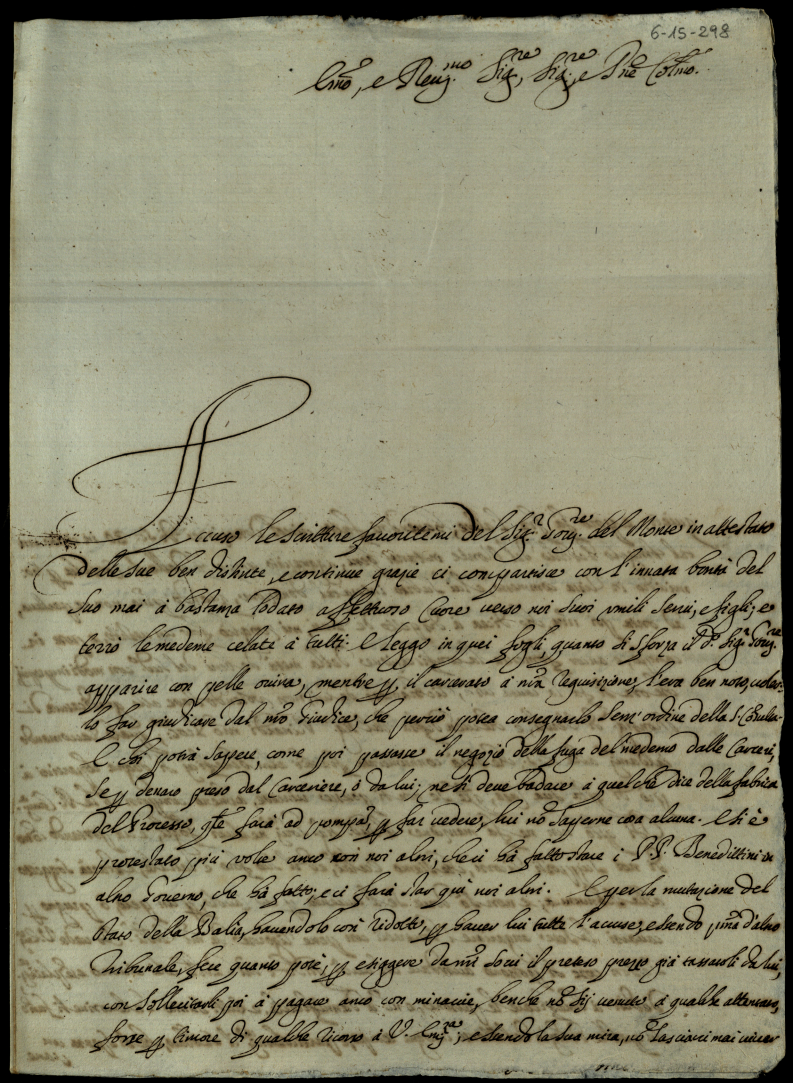 6-15-298
Illmo, e Reu.mo Sig.re, Sig.re, e Prñe Colmo.
Accuso le scritture fauoritemi del Sig.r Gou.re del Monte in attestato
delle sue ben distinte, e continue grazie ci compartisce con l'innata bontà del
suo mai à bastanza lodato affettuoso Cuore uerso noi suoi umili serui, e figli; e
terrò le medeme celate à tutti. E leggo in quei fogli, quanto si sforza il D.o Sig.r Gou.re
apparire con pelle ouina, mentre p il carcerato à nrã requisizione, l'era ben noto, uoler-
lo far giudicare dal nrõ Giudice, che perciò potea consegnarlo senz'ordine della S. Consulta.
E chi potrà sapere, come poi passasse il negozio della fuga del medemo dalle Carceri,
se p denaro preso dal Carceriere, ò da lui; ne si deue badare à quel che dice della fabrica
del Processo, qle farà ad pompa, p far uedere, lui nõ saperne cosa alcuna. E si è
protestato più uolte anco con noi altri, che ci hà fatto stare i P.P. Benedittini in
altro Gouerno, che hà fatto; e ci farà star quì noi altri. E per la mutazione del
stato della Balia, hauendolo così ridotto, p hauer lui tutte l'accuse, essendo pmã d'altro
Tribunale, fece quanto potè, p esiggere da nrĩ socii il preteso prezzo già tassatoli da lui,
con sollecitarli poi à pagare anco con minaccie, benche nõ sij uenuto à qualche attentato,
forse p timore di qualche ricorso à V. Illma; essendo la sua mira, nõ lasciarci mai uiuer